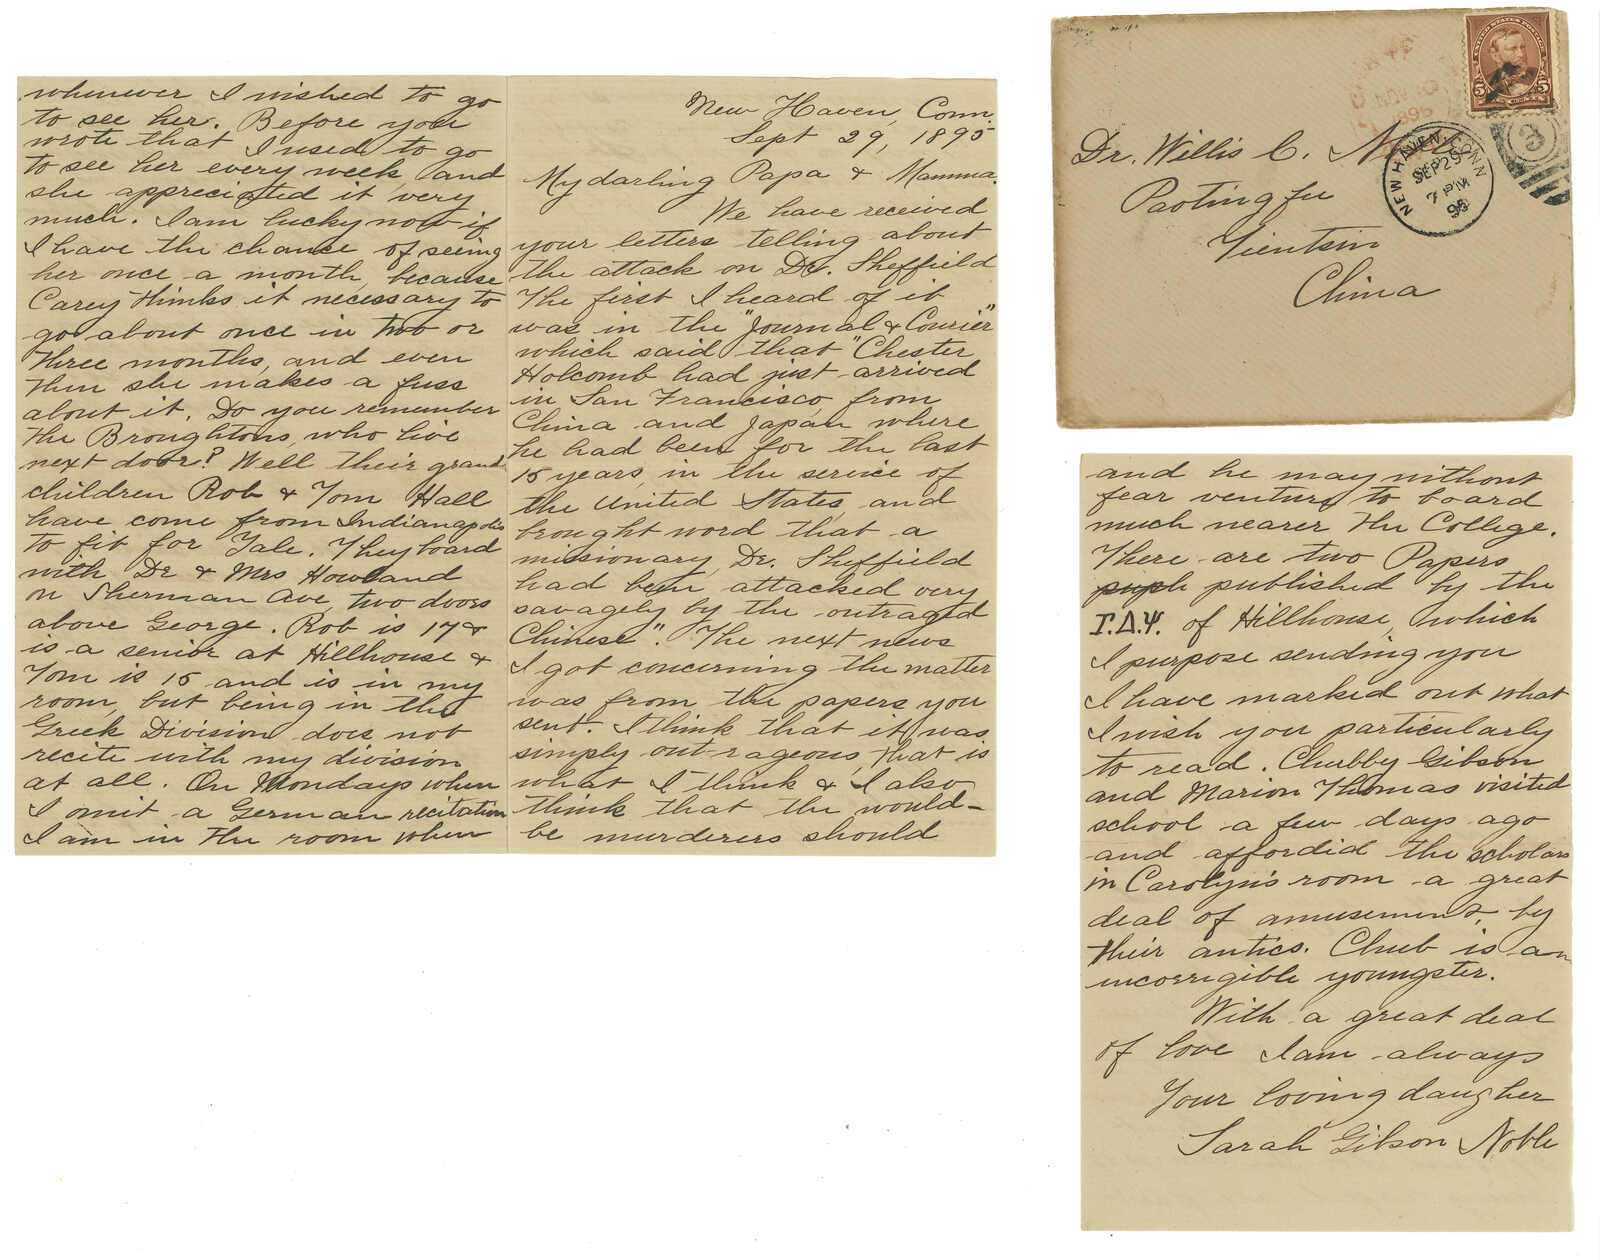 whenever I wished to go
to see her. Before you
wrote that I used to go
to see her every week, and
she appreciated it very
much. I am lucky now if
I have the chance of seeing
her once a month, because
Carey thinks it necessary to
go about once in two or
three months, and even
then she makes a fuss
about it. Do you remember
the Broughtons, who live
next door? Well their grand
children Rob & Tom Hall
have come from Indianapolis
to fit for Yale. They board
with Dr & Mrs Howland
on Sherman Ave, two doors
above George. Rob is 17 &
is a senior at Hillhouse &
Tom is 15 and is in my
room, but being in the
Greek Division does not
recite with my division
at all. On Mondays when
I omit a German recitation
I am in the room when
New Haven, Conn.
Sept 29, 1895
My darling Papa & Mamma.
We have received
your letters telling about
the attack on Dr. Sheffield
The first I heard of it
was in the "Journal & Courier"
which said that "Chester
Holcomb had just arrived
in San Francisco, from
China and Japan where
he had been for the last
15 years, in the service of
the United States, and
brought word that a
missionary, Dr. Sheffield
had been attacked very
savagely by the outraged
Chinese". The next news
I got concerning the matter
was from the papers you
sent. I think that it was
simply out-rageous, that is
what I think & I also
think that the would-
be murderers should
UNITED STATES POSTAGE
5 5
NOV
1895
Dr. Willis C. Noble
Paotingfu
Tientsin
China
NEW HAVEN, CONN
SEP 29
7 PM
95
3
and he may without
fear venture to board
much nearer the College.
There are two Papers
published by the
Γ.Δ.Ψ. of Hillhouse, which
I purpose sending you
I have marked out what
I wish you particularly
to read. Chubby Gibson
and Marion Thomas visited
school a few days ago
and affordid the scholars
in Carolyn's room a great
deal of amusement, by
their antics. Chub is an
incorrigible youngster.
With a great deal
of love I am always
Your loving daugher
Sarah Gibson Noble